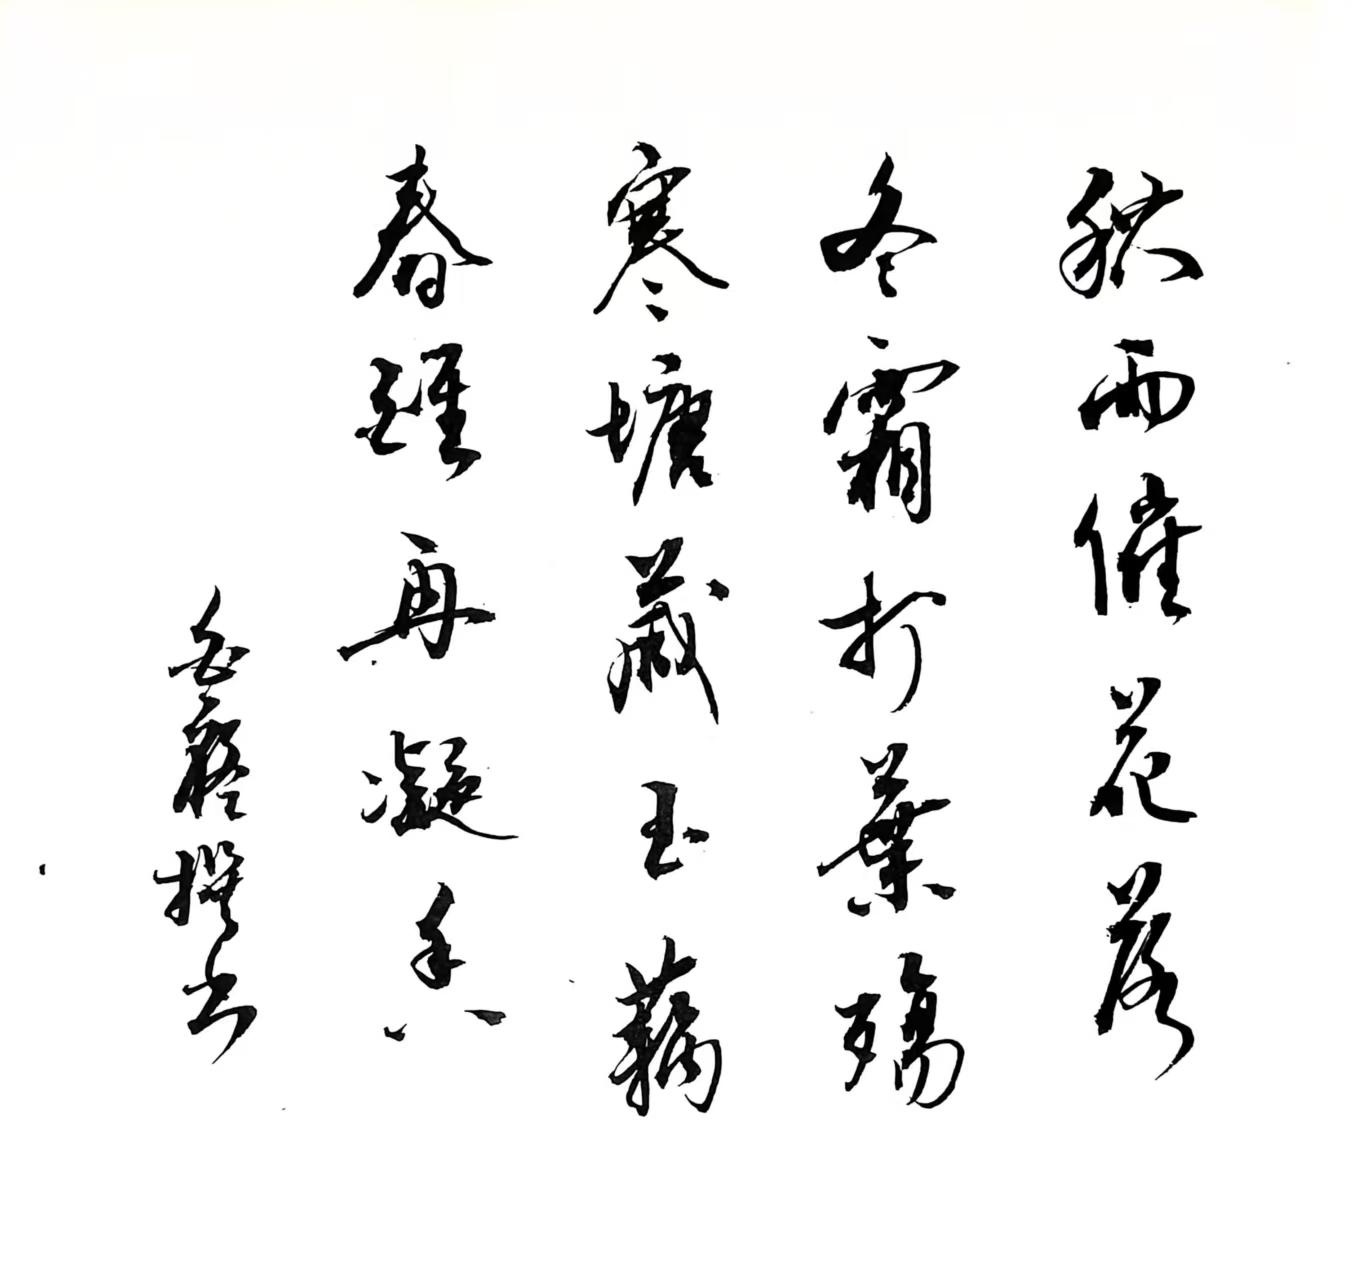 秋雨催花落
冬霜打葉殤
寒塘藏玉藕
春鍾再凝香
撰书